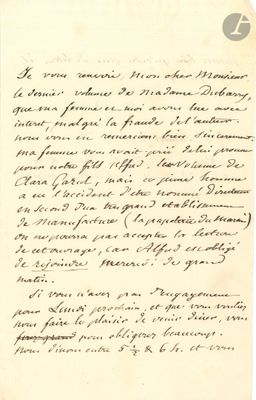 Je vous renvoie, Mon cher Monsieur
le dernier volume de Madame Dubarry,
que ma femme et moi avons lue avec
interet, malgré la fraude de l'auteur
nous vous en remercions bien sincerement.
ma femme vous avait prié de lui procurer
pour notre fils Alfred, le volume de
Clara Gazul, mais ce jeune homme
a eu l'accident d'etre nommé Directeur
en second d'un tres grand etablissement
de Manufacture (la papeterie du Marais)
on ne pourra pas accepter la lecture
de cet ouvrage, car Alfred est obligé
de rejoindre mercredi de grand
matin.
Si vous n'avez pas d'engagement
pour Lundi prochain, et que vous vouliez
nous faire le plaisir de venir diner, vous
nous obligerez beaucoup.
nous dinons entre 5 ½ & 6 h. et vous